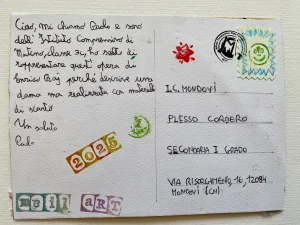 Ciao, mi chiamo Paolo e sono
dell'Istituto Comprensivo di
classe 3L, ho scelto di
rappresentare quest'opera di
Enrico Baj perché descrive una
dama ma realizzata con materiali
di scarto
Un saluto
Paolo
2025
MAIL ART
I.C. MONDOVÌ
PLESSO CORDERO
SECONDARIA I GRADO
VIA RISORGIMENTO, 16, 12084
MONDOVÌ (CN)